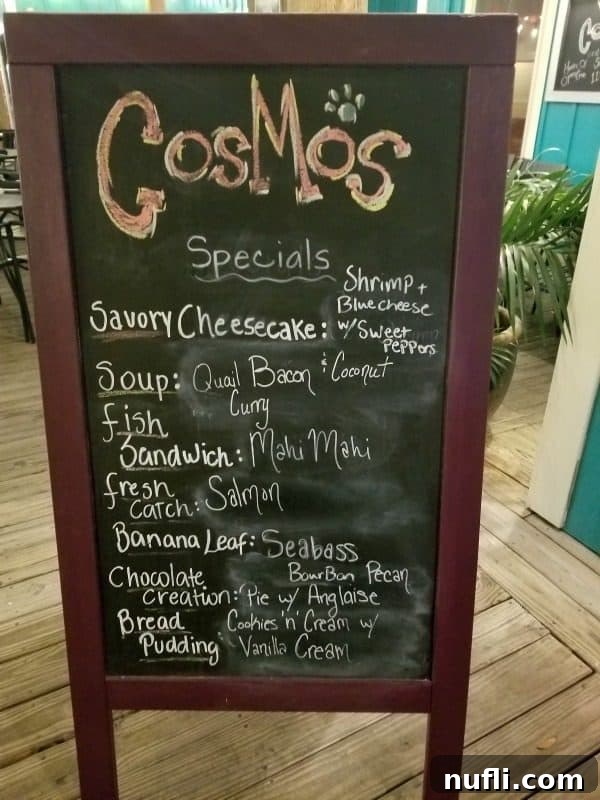 CosMos
Specials
Savory Cheesecake: Shrimp +
Bluecheese
w/ Sweet
Peppers
Soup: Quail Bacon & Coconut
Curry
fish
Sandwich: Mahi Mahi
fresh
Catch: Salmon
Banana Leaf: Seabass
Chocolate BourBon Pecan
Creation: Pie w/ Anglaise
Bread Cookies 'n' Cream w/
Pudding: Vanilla Cream
nufli.com